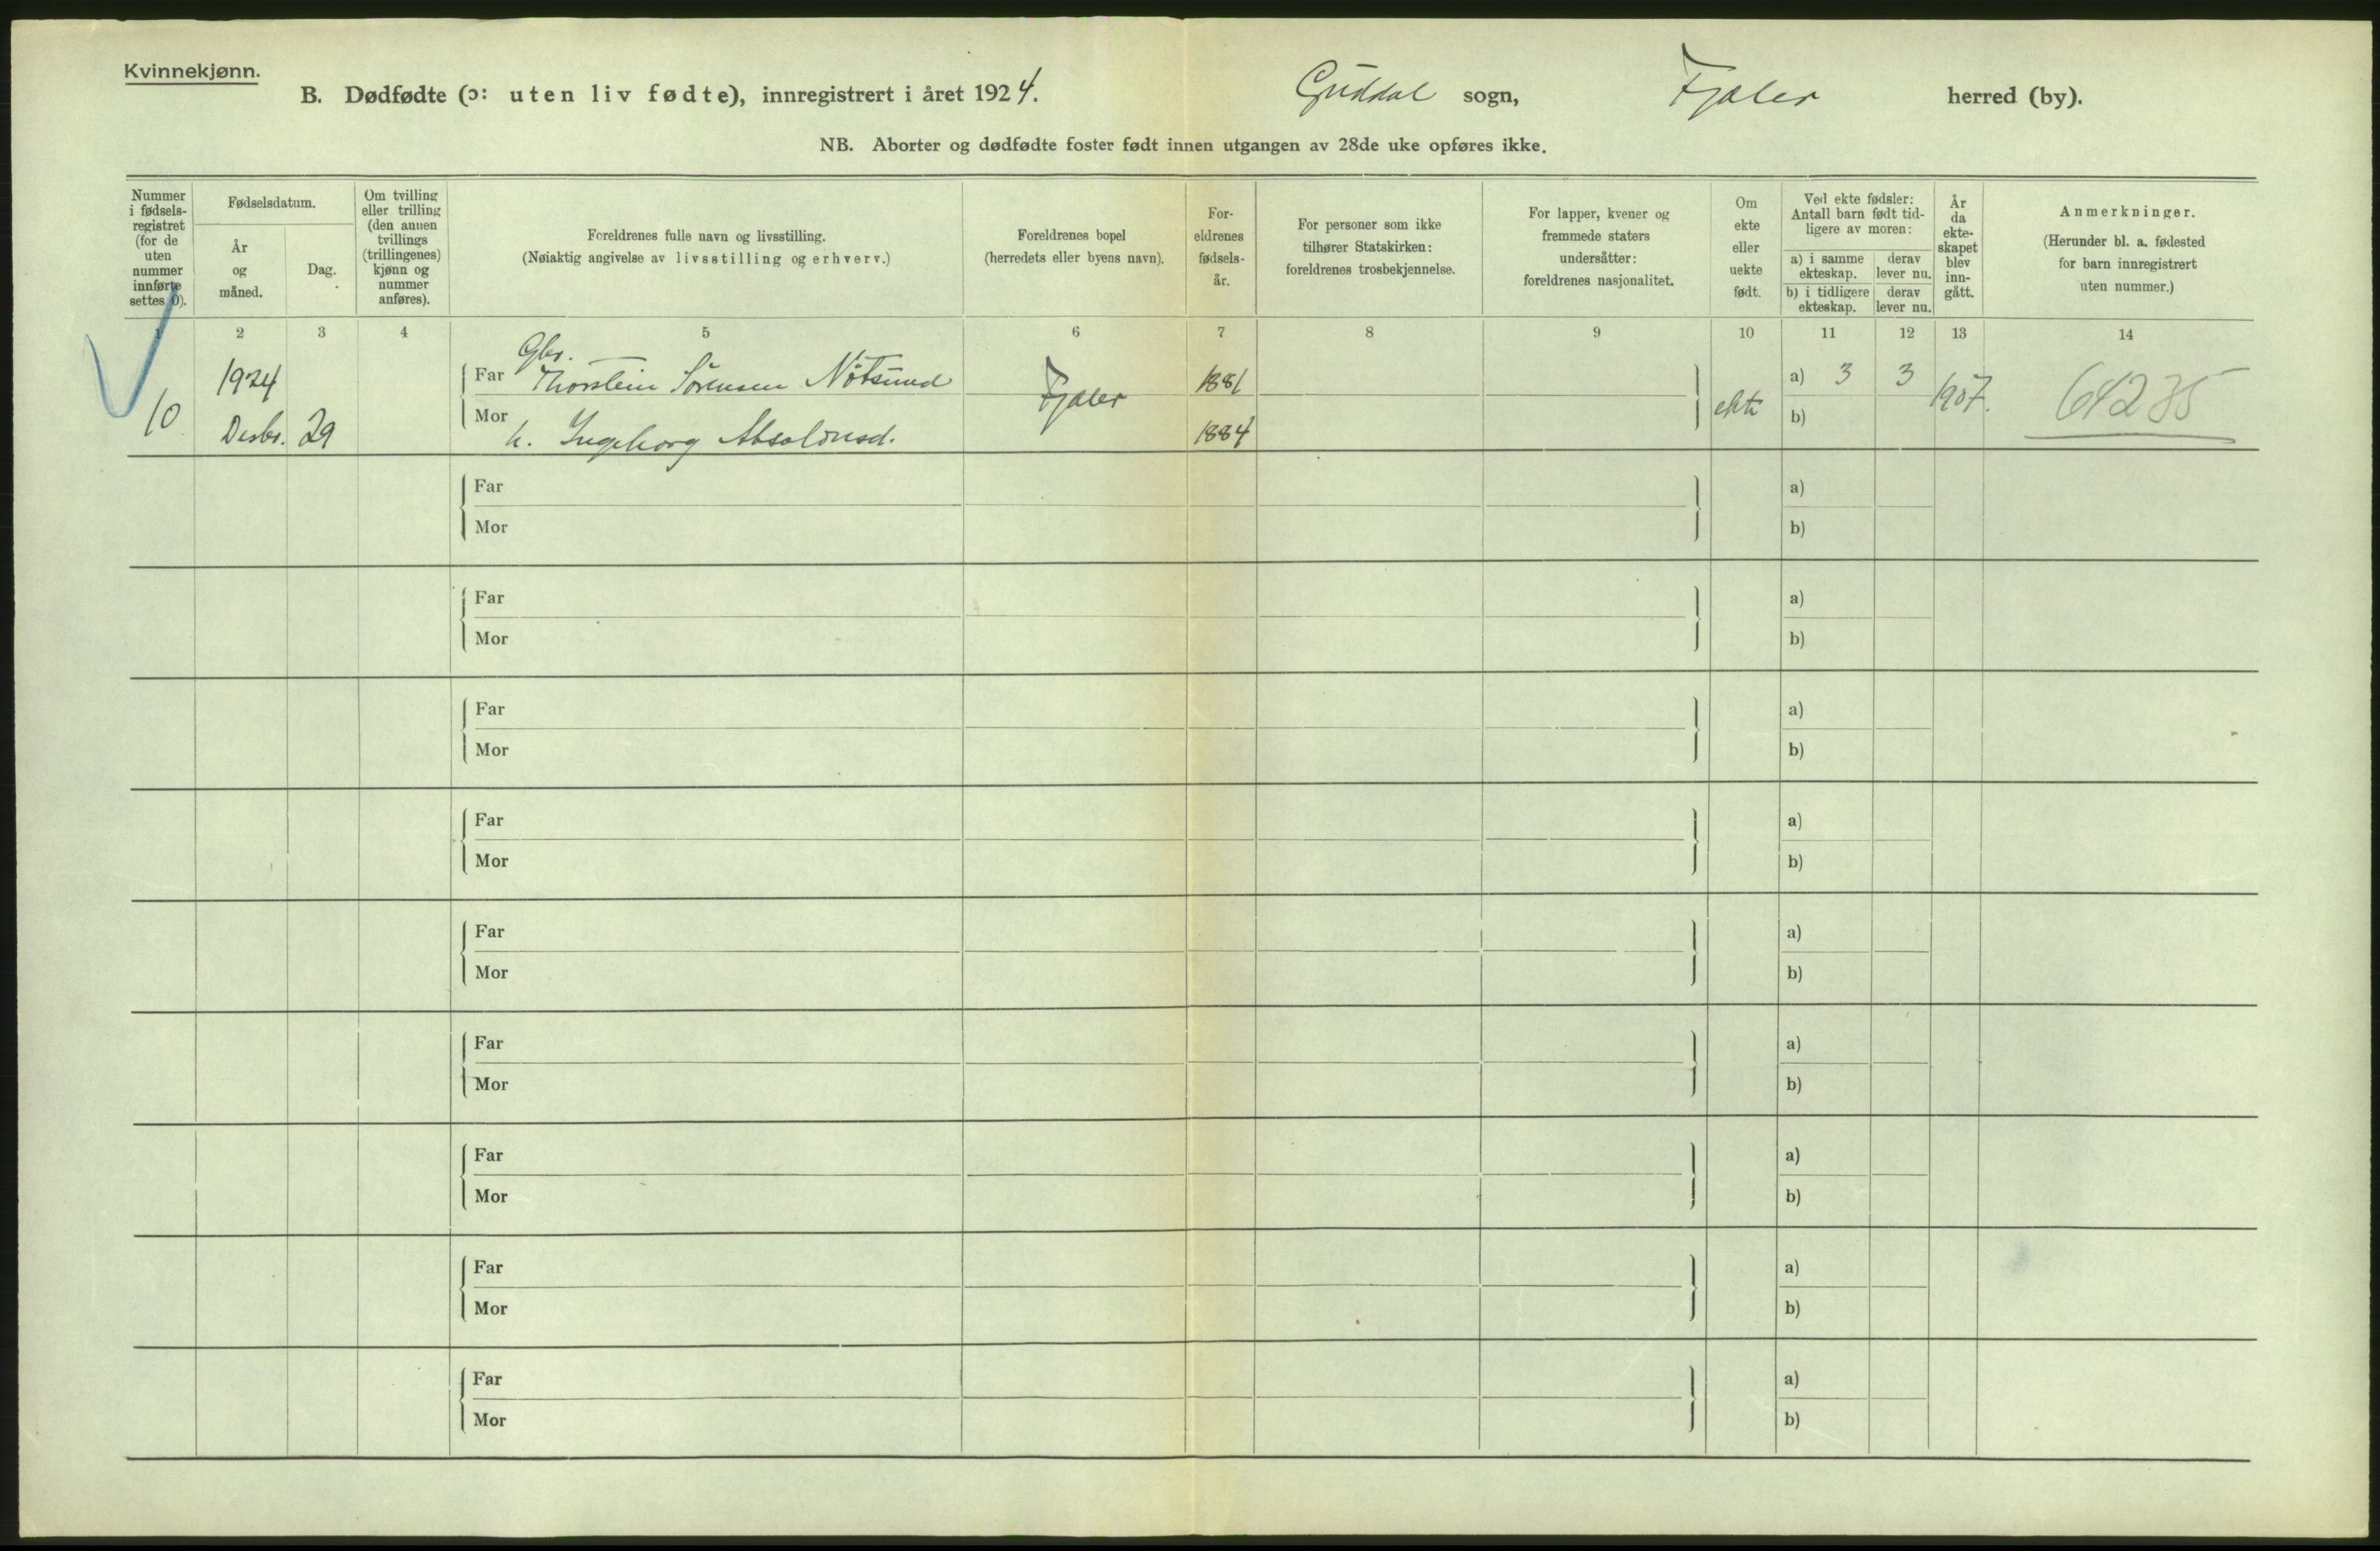 Kvinnekjønn.
B. Dødfødte (ɔ: uten liv fødte), innregistrert i året 1924. Guddal sogn, Fjaler herred (by).
NB. Aborter og dødfødte foster født innen utgangen av 28de uke opføres ikke.
Nummer i fødsels- registret (for de uten nummer innførte settes 0).
Fødselsdatum.
År og måned.
Dag.
Om tvilling eller trilling (den annen tvillings (trillingenes) kjønn og nummer anføres).
Foreldrenes fulle navn og livsstilling.
(Nøiaktig angivelse av livsstilling og erhverv.)
Foreldrenes bopel
(herredets eller byens navn).
For- eldrenes fødsels- år.
For personer som ikke
tilhører Statskirken:
foreldrenes trosbekjennelse.
For lapper, kvener og
fremmede staters
undersåtter:
foreldrenes nasjonalitet.
Om ekte eller uekte født.
Ved ekte fødsler:
Antall barn født tid-
ligere av moren:
a) i samme ekteskap. derav lever nu.
b) i tidligere ekteskap. derav lever nu.
År da ekte- skapet blev inn- gått.
Anmerkninger.
(Herunder bl. a. fødested
for barn innregistrert
uten nummer.)
1 2 3 4 5 6 7 8 9 10 11 12 13 14
Gbr.
1924 Far Thorstein Sörensen Nötsund Fjaler 1881 a) 3 3 1907. 64235
10 Desbr. 29 Mor h. Ingeborg Absalonsd. 1884 ekte b)
Far a)
Mor b)
Far a)
Mor b)
Far a)
Mor b)
Far a)
Mor b)
Far a)
Mor b)
Far a)
Mor b)
Far a)
Mor b)
Far a)
Mor b)
Far a)
Mor b)